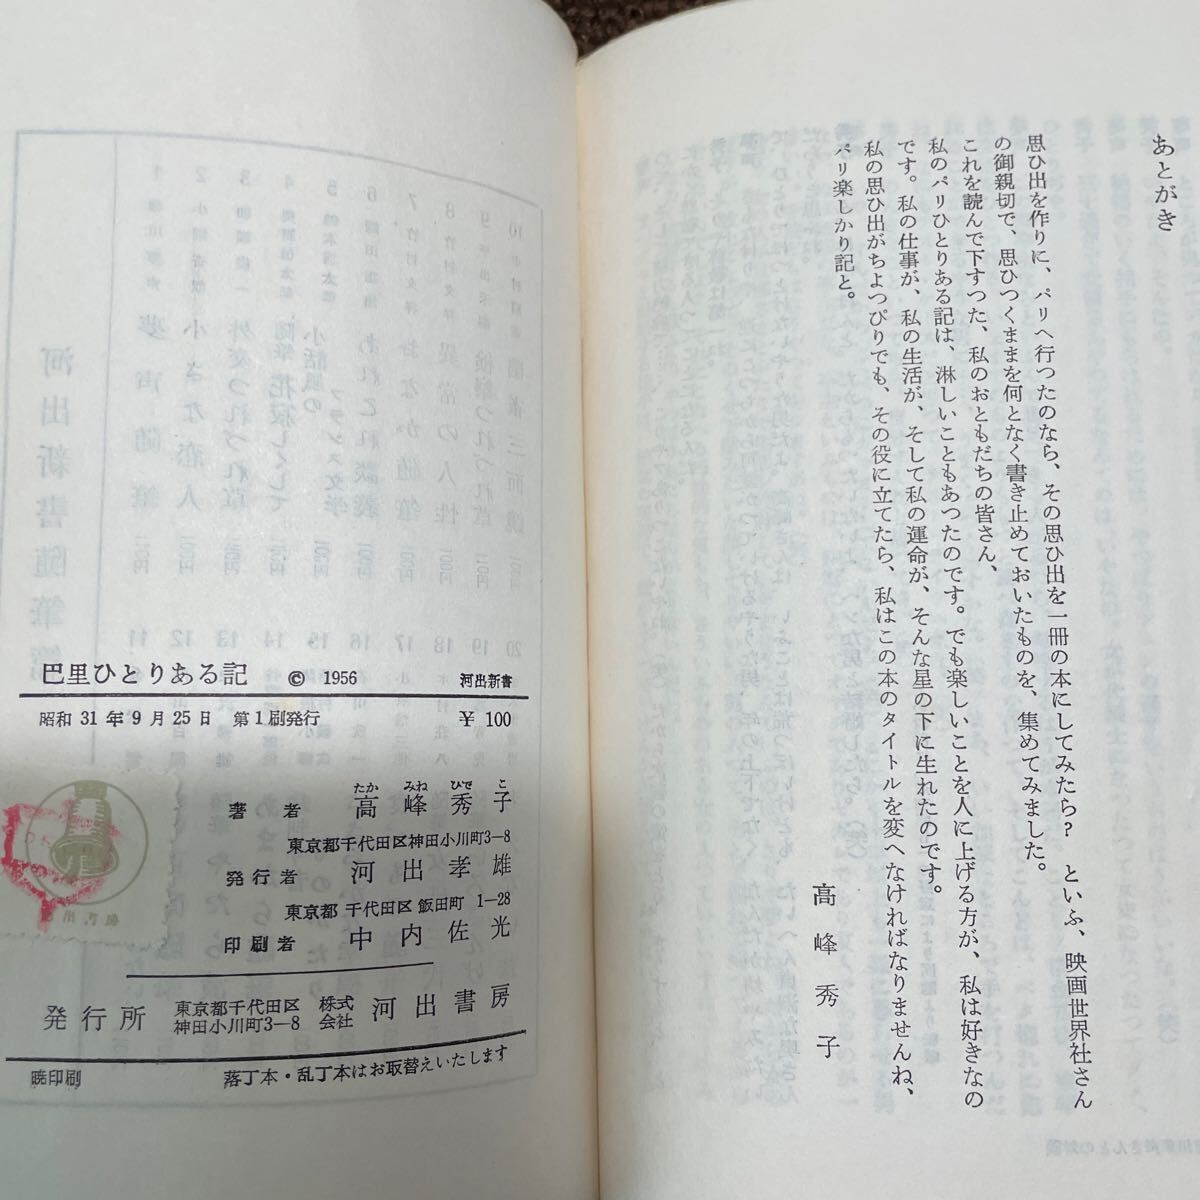 あとがき
思ひ出を作りに、パリへ行つたのなら、その思ひ出を一冊の本にしてみたら? といふ、映画世界社さん
の御親切で、思ひつくままを何となく書き止めておいたものを、集めてみました。
これを読んで下すつた、私のおともだちの皆さん、
私のパリひとりある記は、淋しいこともあつたのです。でも楽しいことを人に上げる方が、私は好きなの
です。私の仕事が、私の生活が、そして私の運命が、そんな星の下に生れたのです。
私の思ひ出がちよつぴりでも、その役に立てたら、私はこの本のタイトルを変へなければなりませんね、
パリ楽しかり記と。
高峰秀子
巴里ひとりある記 © 1956 河出新書
昭和31年9月25日 第1刷発行 ¥100
たか みね ひで こ
著者 高峰秀子
東京都千代田区神田小川町3−8
発行者 河出孝雄
東京都千代田区飯田町1−28
印刷者 中内佐光
発行所 東京都千代田区神田小川町3−8 株式会社 河出書房
暁印刷 落丁本・乱丁本はお取替えいたします